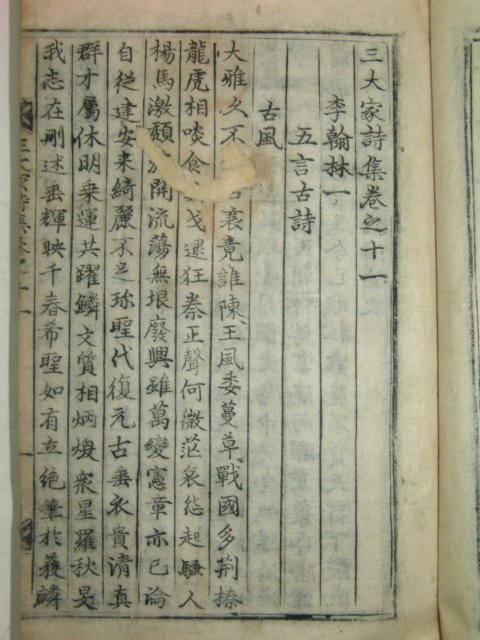 三大家詩集卷之十一
李翰林一
五言古詩
古風
大雅久不衰竟誰陳王風委蔓草戰國多荆榛
龍虎相啖食戈逮狂秦正聲何微茫哀怨起騷人
楊馬激頹開流蕩無垠廢興雖萬變憲章亦已論
自從建安来綺麗不足珍聖代復元古垂衣貴清真
群才屬休明乗運共躍鱗文質相炳煥衆星羅秋旻
我志在刪述垂輝映千春希聖如有立絶筆於獲麟